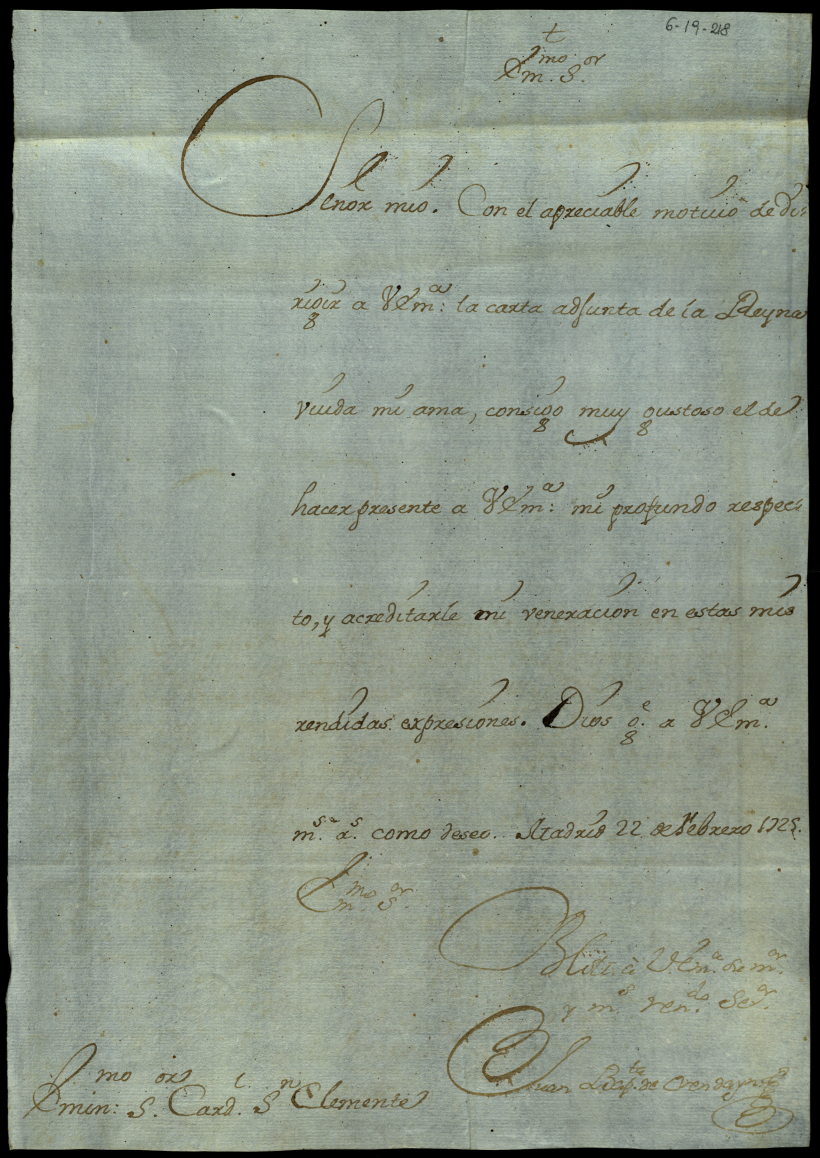 6-19-218
t
Em.mo S.or
Señor mio. Con el apreciable motiuo de di-
rigir a V Em.a: la carta adjunta de la Reyna
viuda mi ama, consigo muy gustoso el de
hacer presente a V Em.a: mi profundo respec-
to, y acreditarle mi veneracion en estas mis
rendidas expresiones. Dios g.e a V Em.a
m.s a.s como deseo. Madrid 22 de Febrero 1725.
Em.mo S.or
a V. Em.a de m.or
y m.s ren.do Se.or
Juan Bap.ta de Orendayn
Emin:mo S.or Card.l S.n Clemente